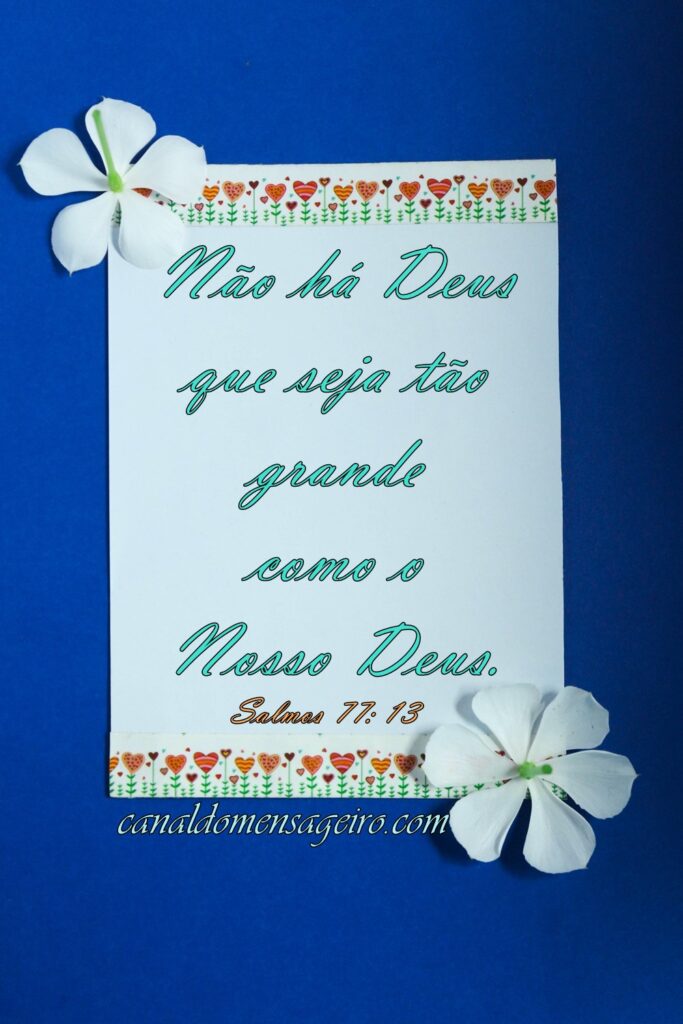 Não há Deus
que seja tão
grande
como o
Nosso Deus.
Salmos 77: 13
canaldomensageiro.com